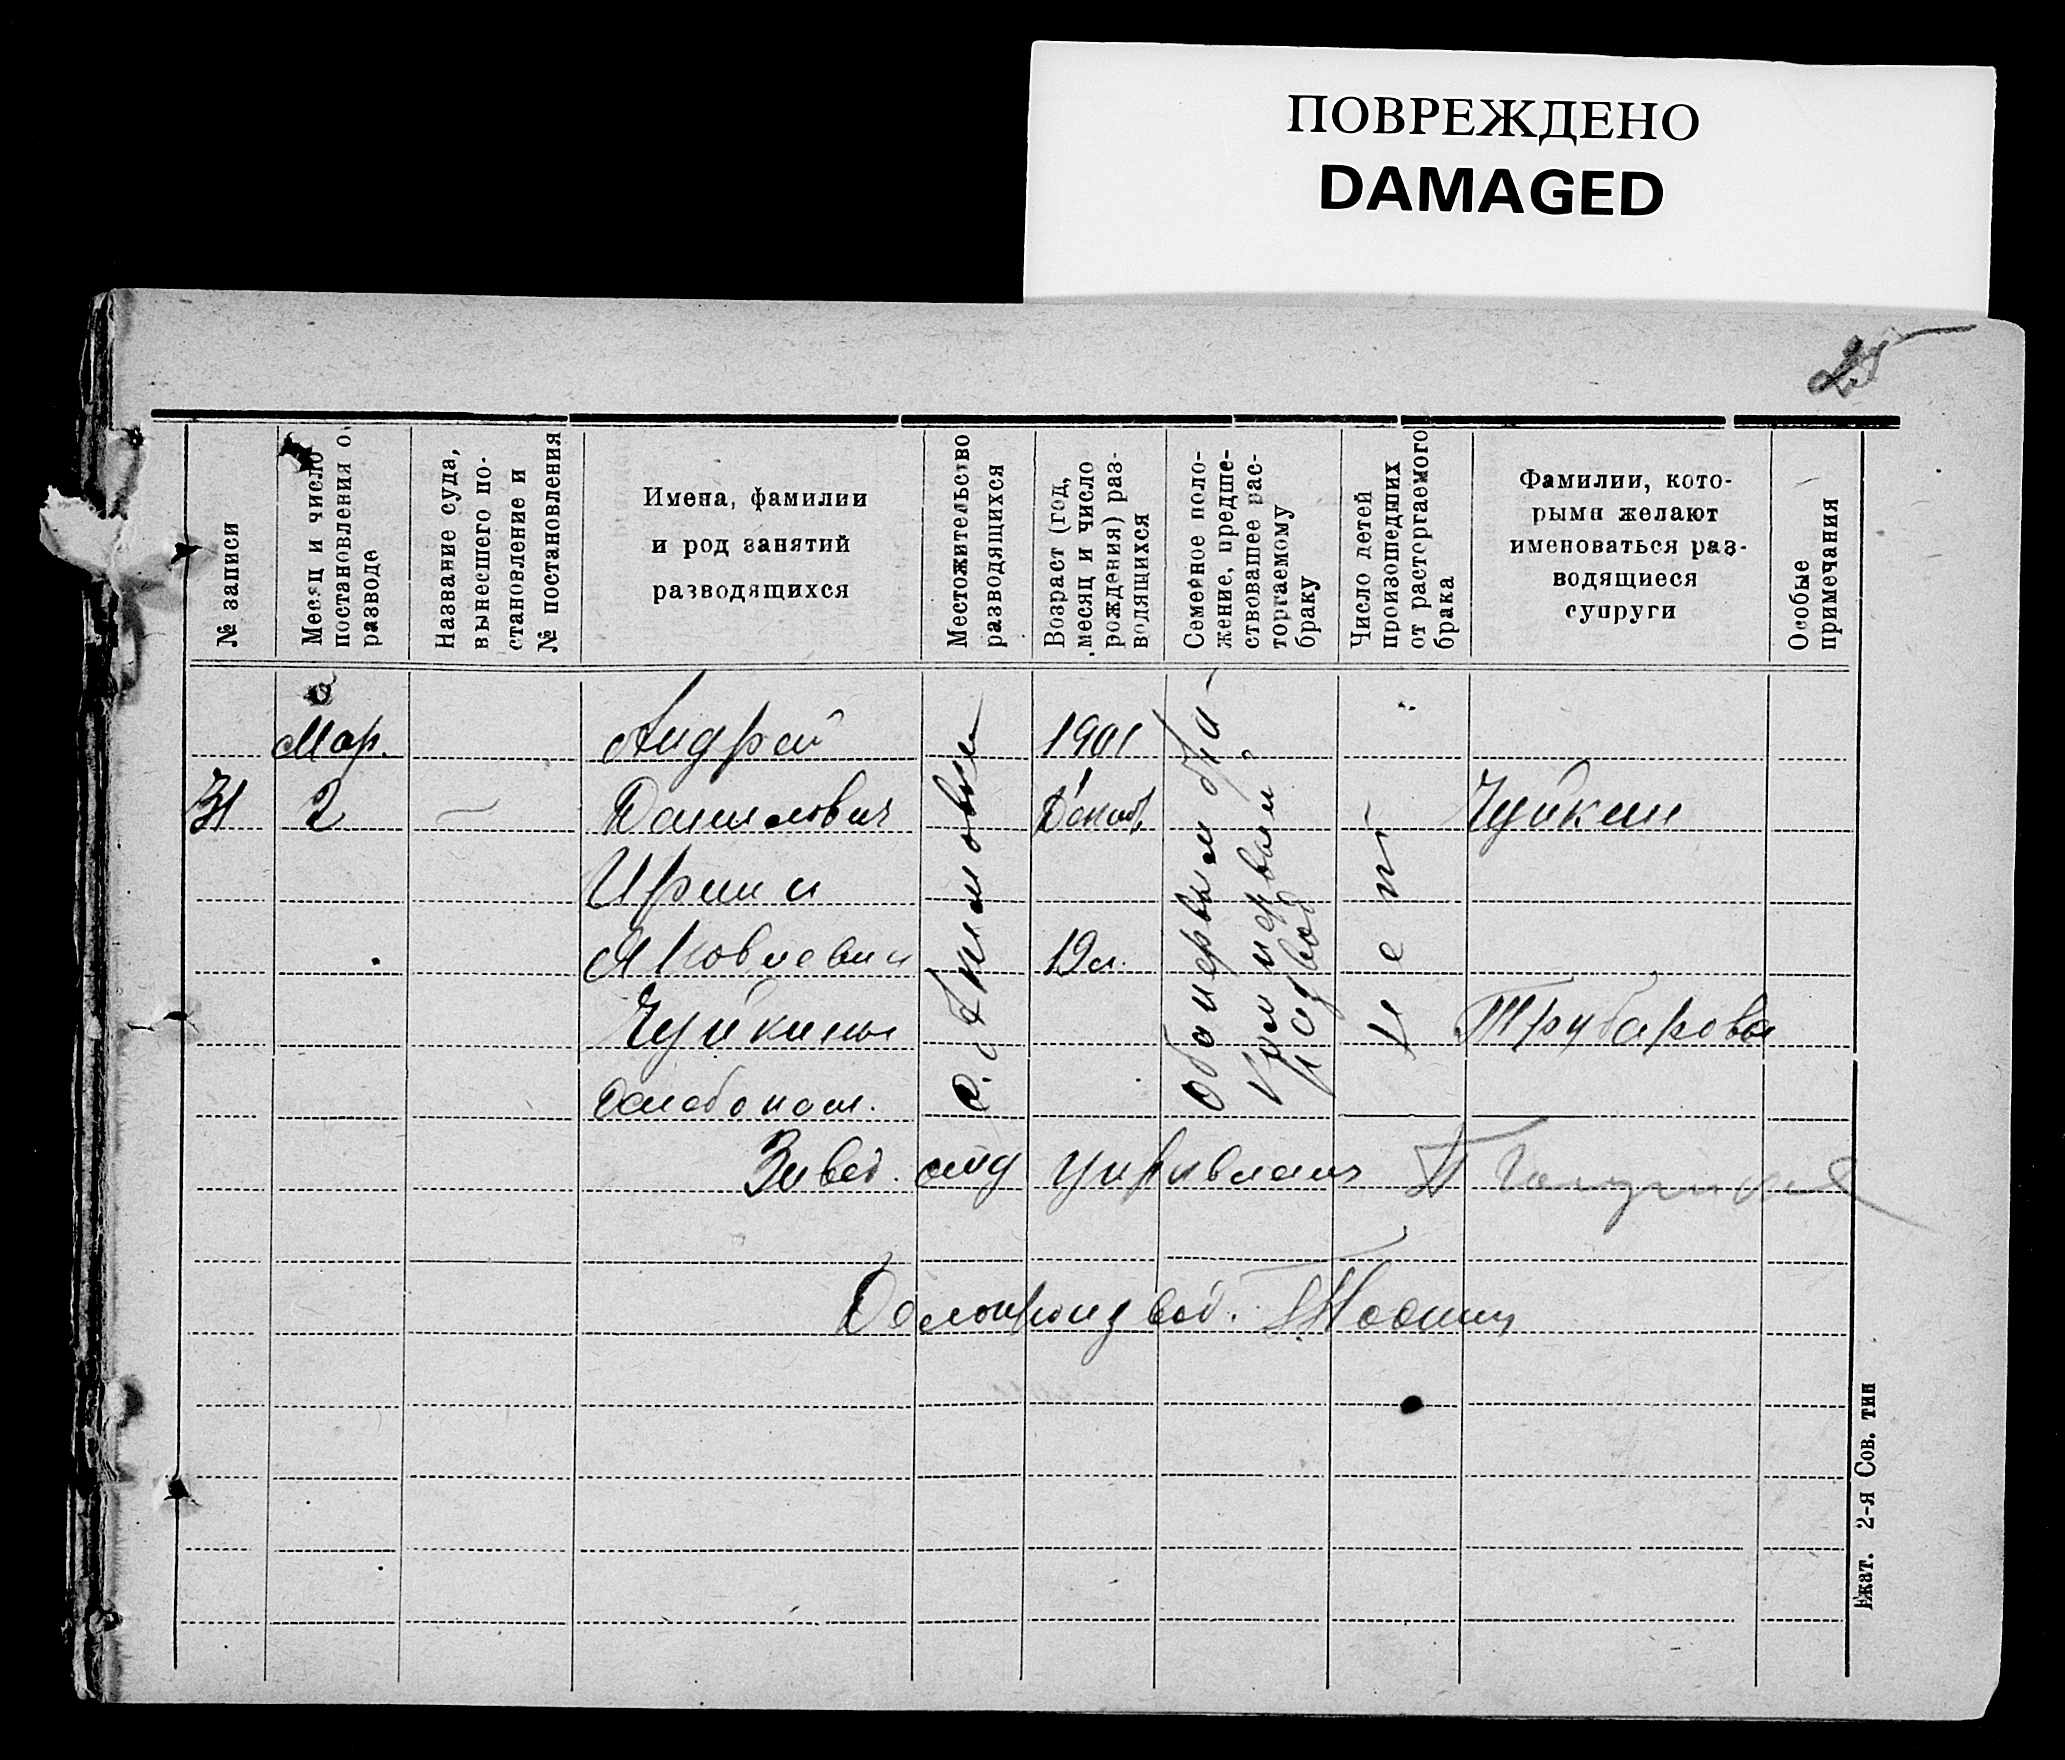 ПОВРЕЖДЕНО
DAMAGED
25
№ записи
Месяц и число
постановления о
разводе
Название суда,
вынесшего по-
становление и
№ постановления
Имена, фамилии
и род занятий
разводящихся
Местожительство
разводящихся
Возраст (год,
месяц и число
рождения) раз-
водящихся
Семейное поло-
жение, предше-
ствовавшее рас-
торгаемому
браку
Число детей
произошедших
от расторгаемого
брака
Фамилии, кото-
рыми желают
именоваться раз-
водящиеся
супруги
Особые
примечания
Мар.
Андрей
1901
31
2
—
Данилович
Чуйкин
Ирина
Яковлевна
19 л.
Чуйкины
Трубарова
хлебопаш.
Оба первым бра-
ком первый
развод
нет
Завед. отд управления
Делопроизвод.
Екат. 2-я Сов. тип